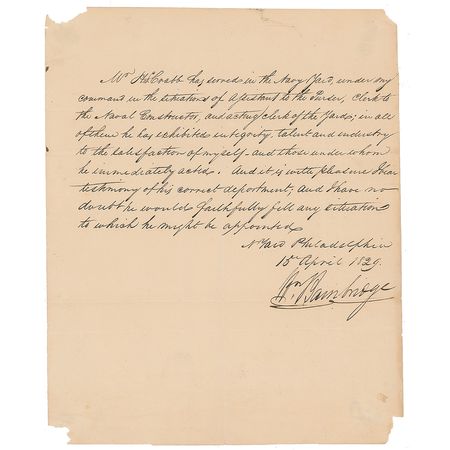 Mr. Hs. Crabb has served in the Navy Yard, under my
command in the situations of Assistant to the Purser, Clerk to
the Naval Constructor, and acting clerk of the Yards; in all
of them he has exhibited integrity, talent and industry
to the satisfaction of myself and those under whom
he immediately acted. And it is with pleasure I bear
testimony of his correct deportment, and I have no
doubt he would faithfully fill any situation
to which he might be appointed
N Yard Philadelphia
15 April 1829.
Wm Bainbridge